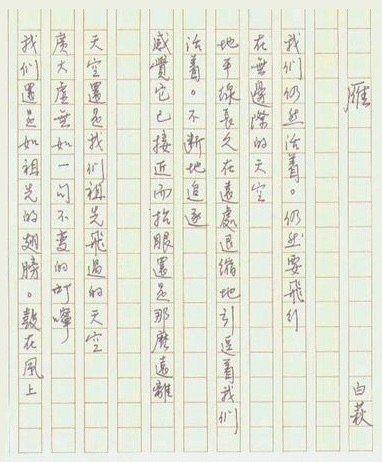 雁
白萩
我們仍然活着。仍然要飛行
在無邊際的天空
地平線長久在遠處退縮地引逗着我們
活着。不斷地追逐
感覺它已接近而抬眼還是那麼遠離
天空還是我們祖先飛過的天空
廣大虛無如一句不變的叮嚀
我們還是如祖先的翅膀。鼓在風上